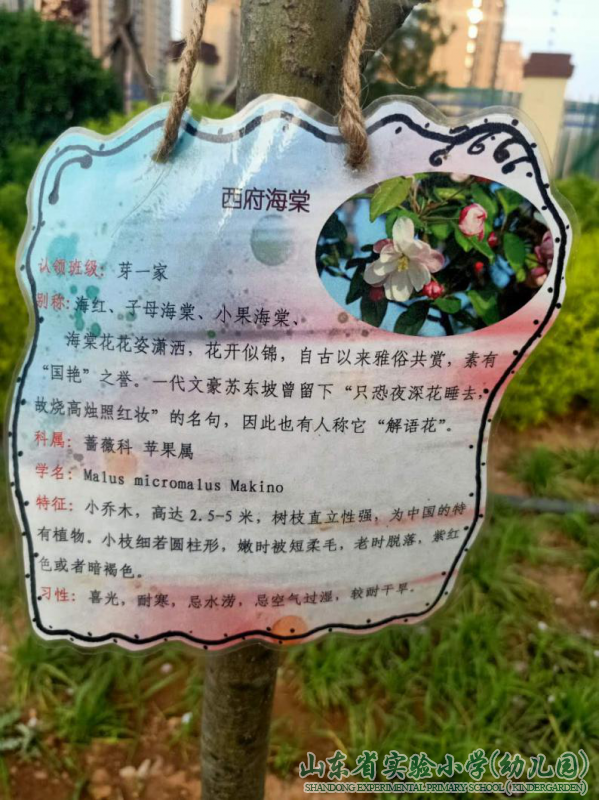 西府海棠
认领班级：芽一家
别称：海红、子母海棠、小果海棠、
海棠花花姿潇洒，花开似锦，自古以来雅俗共赏，素有
“国艳”之誉。一代文豪苏东坡曾留下“只恐夜深花睡去，
故烧高烛照红妆”的名句，因此也有人称它“解语花”。
科属：蔷薇科 苹果属
学名：Malus micromalus Makino
特征：小乔木，高达 2.5-5 米，树枝直立性强，为中国的特
有植物。小枝细若圆柱形，嫩时被短柔毛，老时脱落，紫红
色或者暗褐色。
习性：喜光，耐寒，忌水涝，忌空气过湿，较耐干旱。
山东省实验小学(幼儿园)
SHANDONG EXPERIMENTAL PRIMARY SCHOOL (KINDERGARDEN)